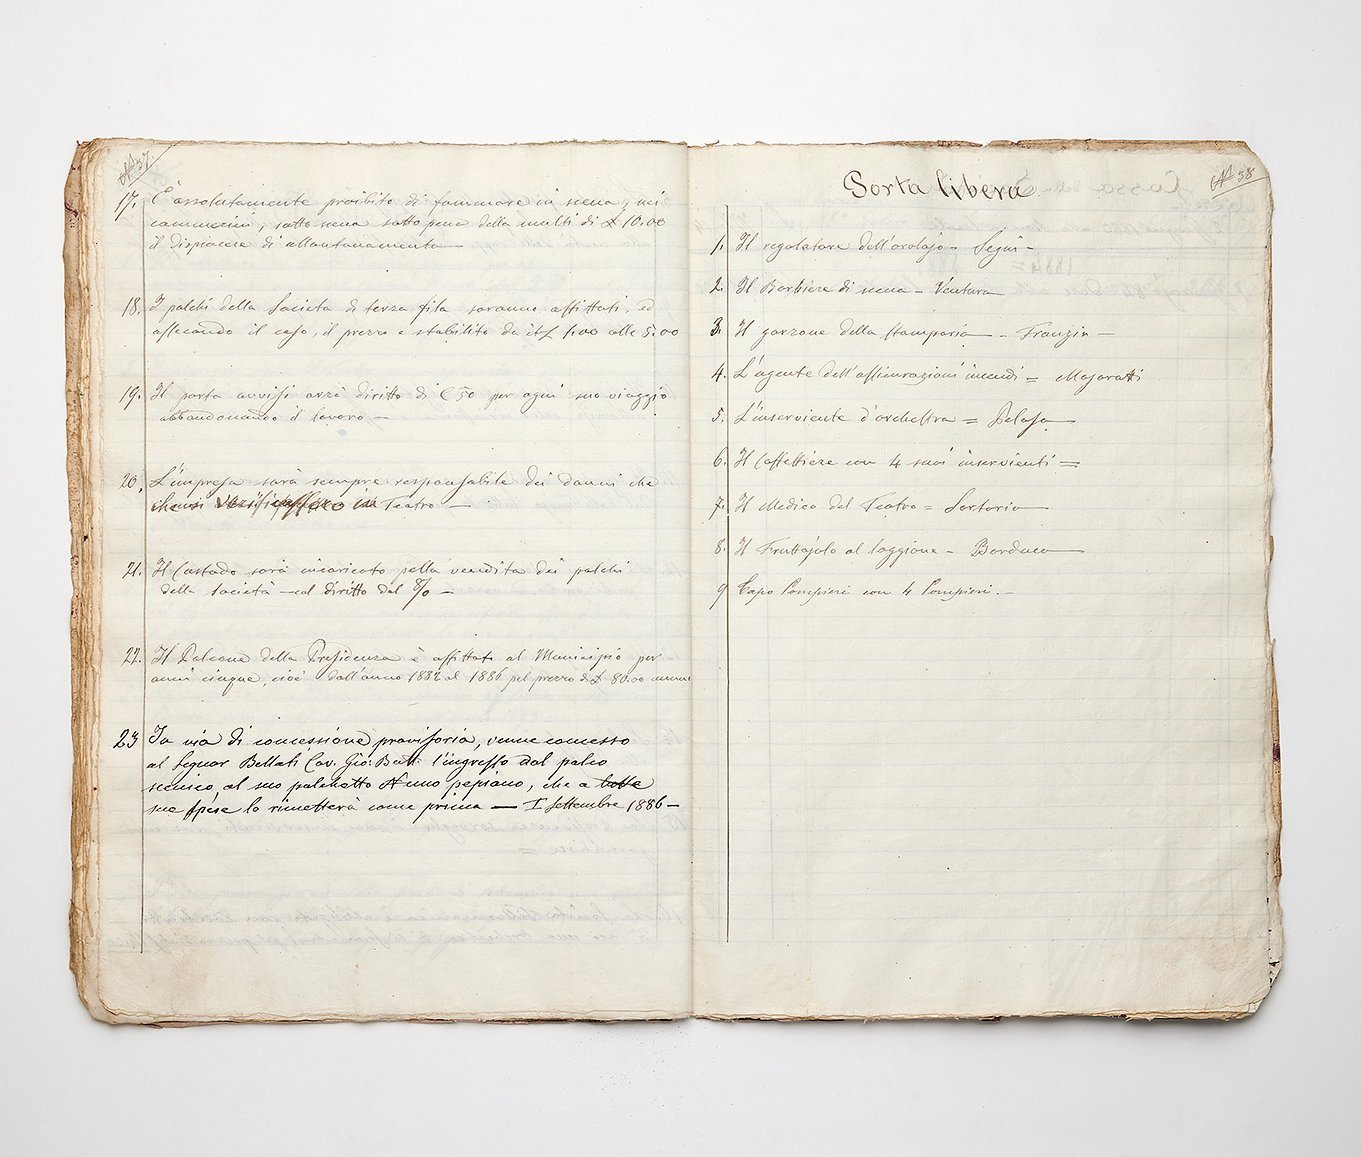 N° 37.
17. È assolutamente proibito di fummare in scena, nei
cammerini, sotto scena sotto pena della multi di £ 10.00
il dispiacere di allontanamento —
18. I palchi della Società di terza fila saranno affittati, ed
affittando il caso, il prezzo è stabilito da it£ 4.00 alle 5.00
19. Il porta avvisi avrà diritto di C 50 per ogni suo viaggio
abbandonando il lavoro —
20. L'impresa sarà sempre responsabile dei danni che
che si verificassero in Teatro —
21. Il Custode sarà incaricato pella vendita dei palchi
della società — col diritto del 8/0 —
22. Il Palcone della Presidenza è affittato al Municipio per
anni cinque, cioè dall'anno 1882 al 1886 pel prezzo di £ 80.00 annue
23 In via di concessione provisoria, venne concesso
al Signor Bellati Cav. Gio: Batt: l'ingresso dal palco
scenico, al suo palchetto N uno pepiano, che a tutte
sue spese lo rimetterà come prima — I Settembre 1886 —
N° 38
Porta libera
1. Il regolatore dell'orologio — Segui —
2. Il Barbiere di scena — Ventura
3. Il garzone della stamparia — Franzin —
4. L'agente dell'assicurazioni incendi = Majoratti
5. L'inserviente d'orchestra = Pelosa
6. Il Caffettiere con 4 suoi inservienti =
7. Il Medico del Teatro = Sartorio
8. Il Fruttajolo al loggione — Borduca
9 Capo Pompieri con 4 Pompieri. —